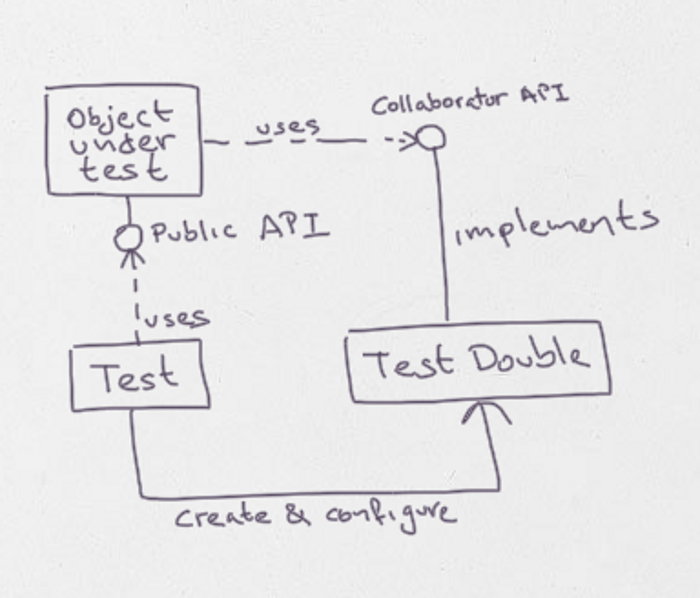 Object
under
test
uses
Collaborator API
Public API
implements
uses
Test
Test Double
Create & configure